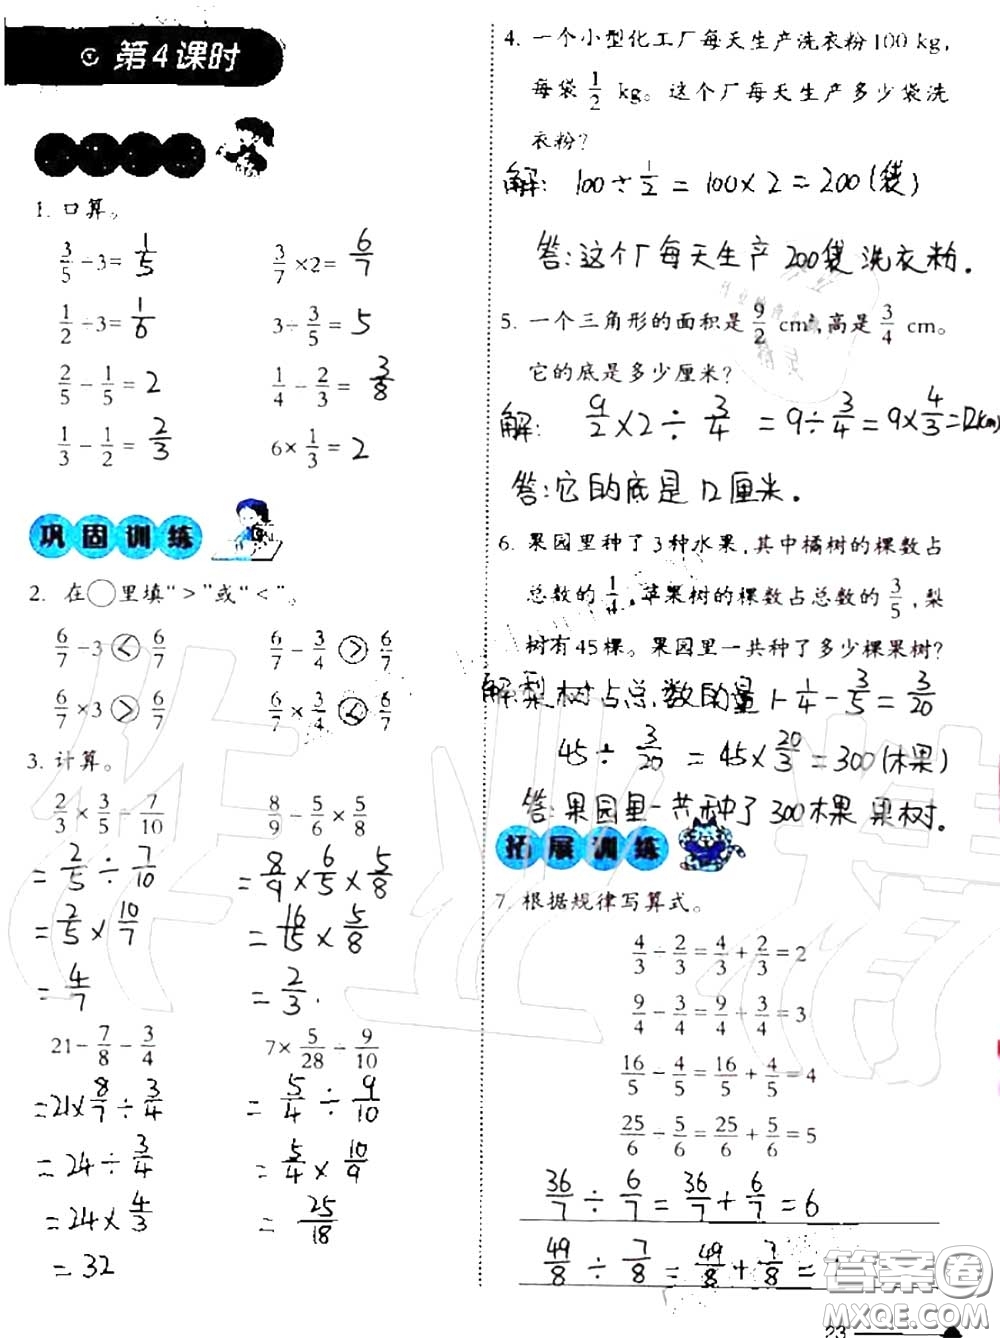 第4课时
1. 口算。
3/5 - 3= 1/5
3/7 ×2= 6/7
1/2 - 3= 1/6
3- 3/5 = 5
2/5 - 1/5 = 2
1/4 - 2/3 = 3/8
1/3 - 1/2 = 2/3
6× 1/3 = 2
巩固训练
2. 在○里填“>”或“<”。
6/7 - 3 < 6/7
6/7 - 3/4 > 6/7
6/7 ×3 > 6/7
6/7 × 3/4 < 6/7
3. 计算。
2/3 × 3/5 - 7/10
= 2/5 ÷ 7/10
= 2/5 × 10/7
= 4/7
8/9 - 5/6 × 5/8
= 8/9 × 6/5 × 5/8
= 16/15 × 5/8
= 2/3.
21- 7/8 - 3/4
=21× 8/7 ÷ 3/4
= 24 ÷ 3/4
= 24 × 4/3
= 32
7× 5/28 - 9/10
= 5/4 ÷ 9/10
= 5/4 × 10/9
= 25/18
4. 一个小型化工厂每天生产洗衣粉100 kg,
每袋 1/2 kg。这个厂每天生产多少袋洗
衣粉?
解: 100 ÷ 1/2 = 100 × 2 = 200 (袋)
答:这个厂每天生产 200袋 洗衣粉.
5. 一个三角形的面积是 9/2 cm²,高是 3/4 cm。
它的底是多少厘米?
解: 9/2 × 2 ÷ 3/4 = 9 ÷ 3/4 = 9 × 4/3 = 12(cm)
答:它的底是 12厘米.
6. 果园里种了3种水果,其中橘树的棵数占
总数的 1/4 ,苹果树的棵数占总数的 3/5 ,梨
树有45棵。果园里一共种了多少棵果树?
解:梨树占总数的量 1- 1/4 - 3/5 = 3/20
45 ÷ 3/20 = 45 × 20/3 = 300 (棵)
答:果园里一共种了 300棵 果树.
拓展训练
7. 根据规律写算式。
4/3 - 2/3 = 4/3 + 2/3 = 2
9/4 - 3/4 = 9/4 + 3/4 = 3
16/5 - 4/5 = 16/5 + 4/5 = 4
25/6 - 5/6 = 25/6 + 5/6 = 5
36/7 ÷ 6/7 = 36/7 + 6/7 = 6
49/8 ÷ 7/8 = 49/8 + 7/8 =
答案圈
MXQE.COM
23
作业精